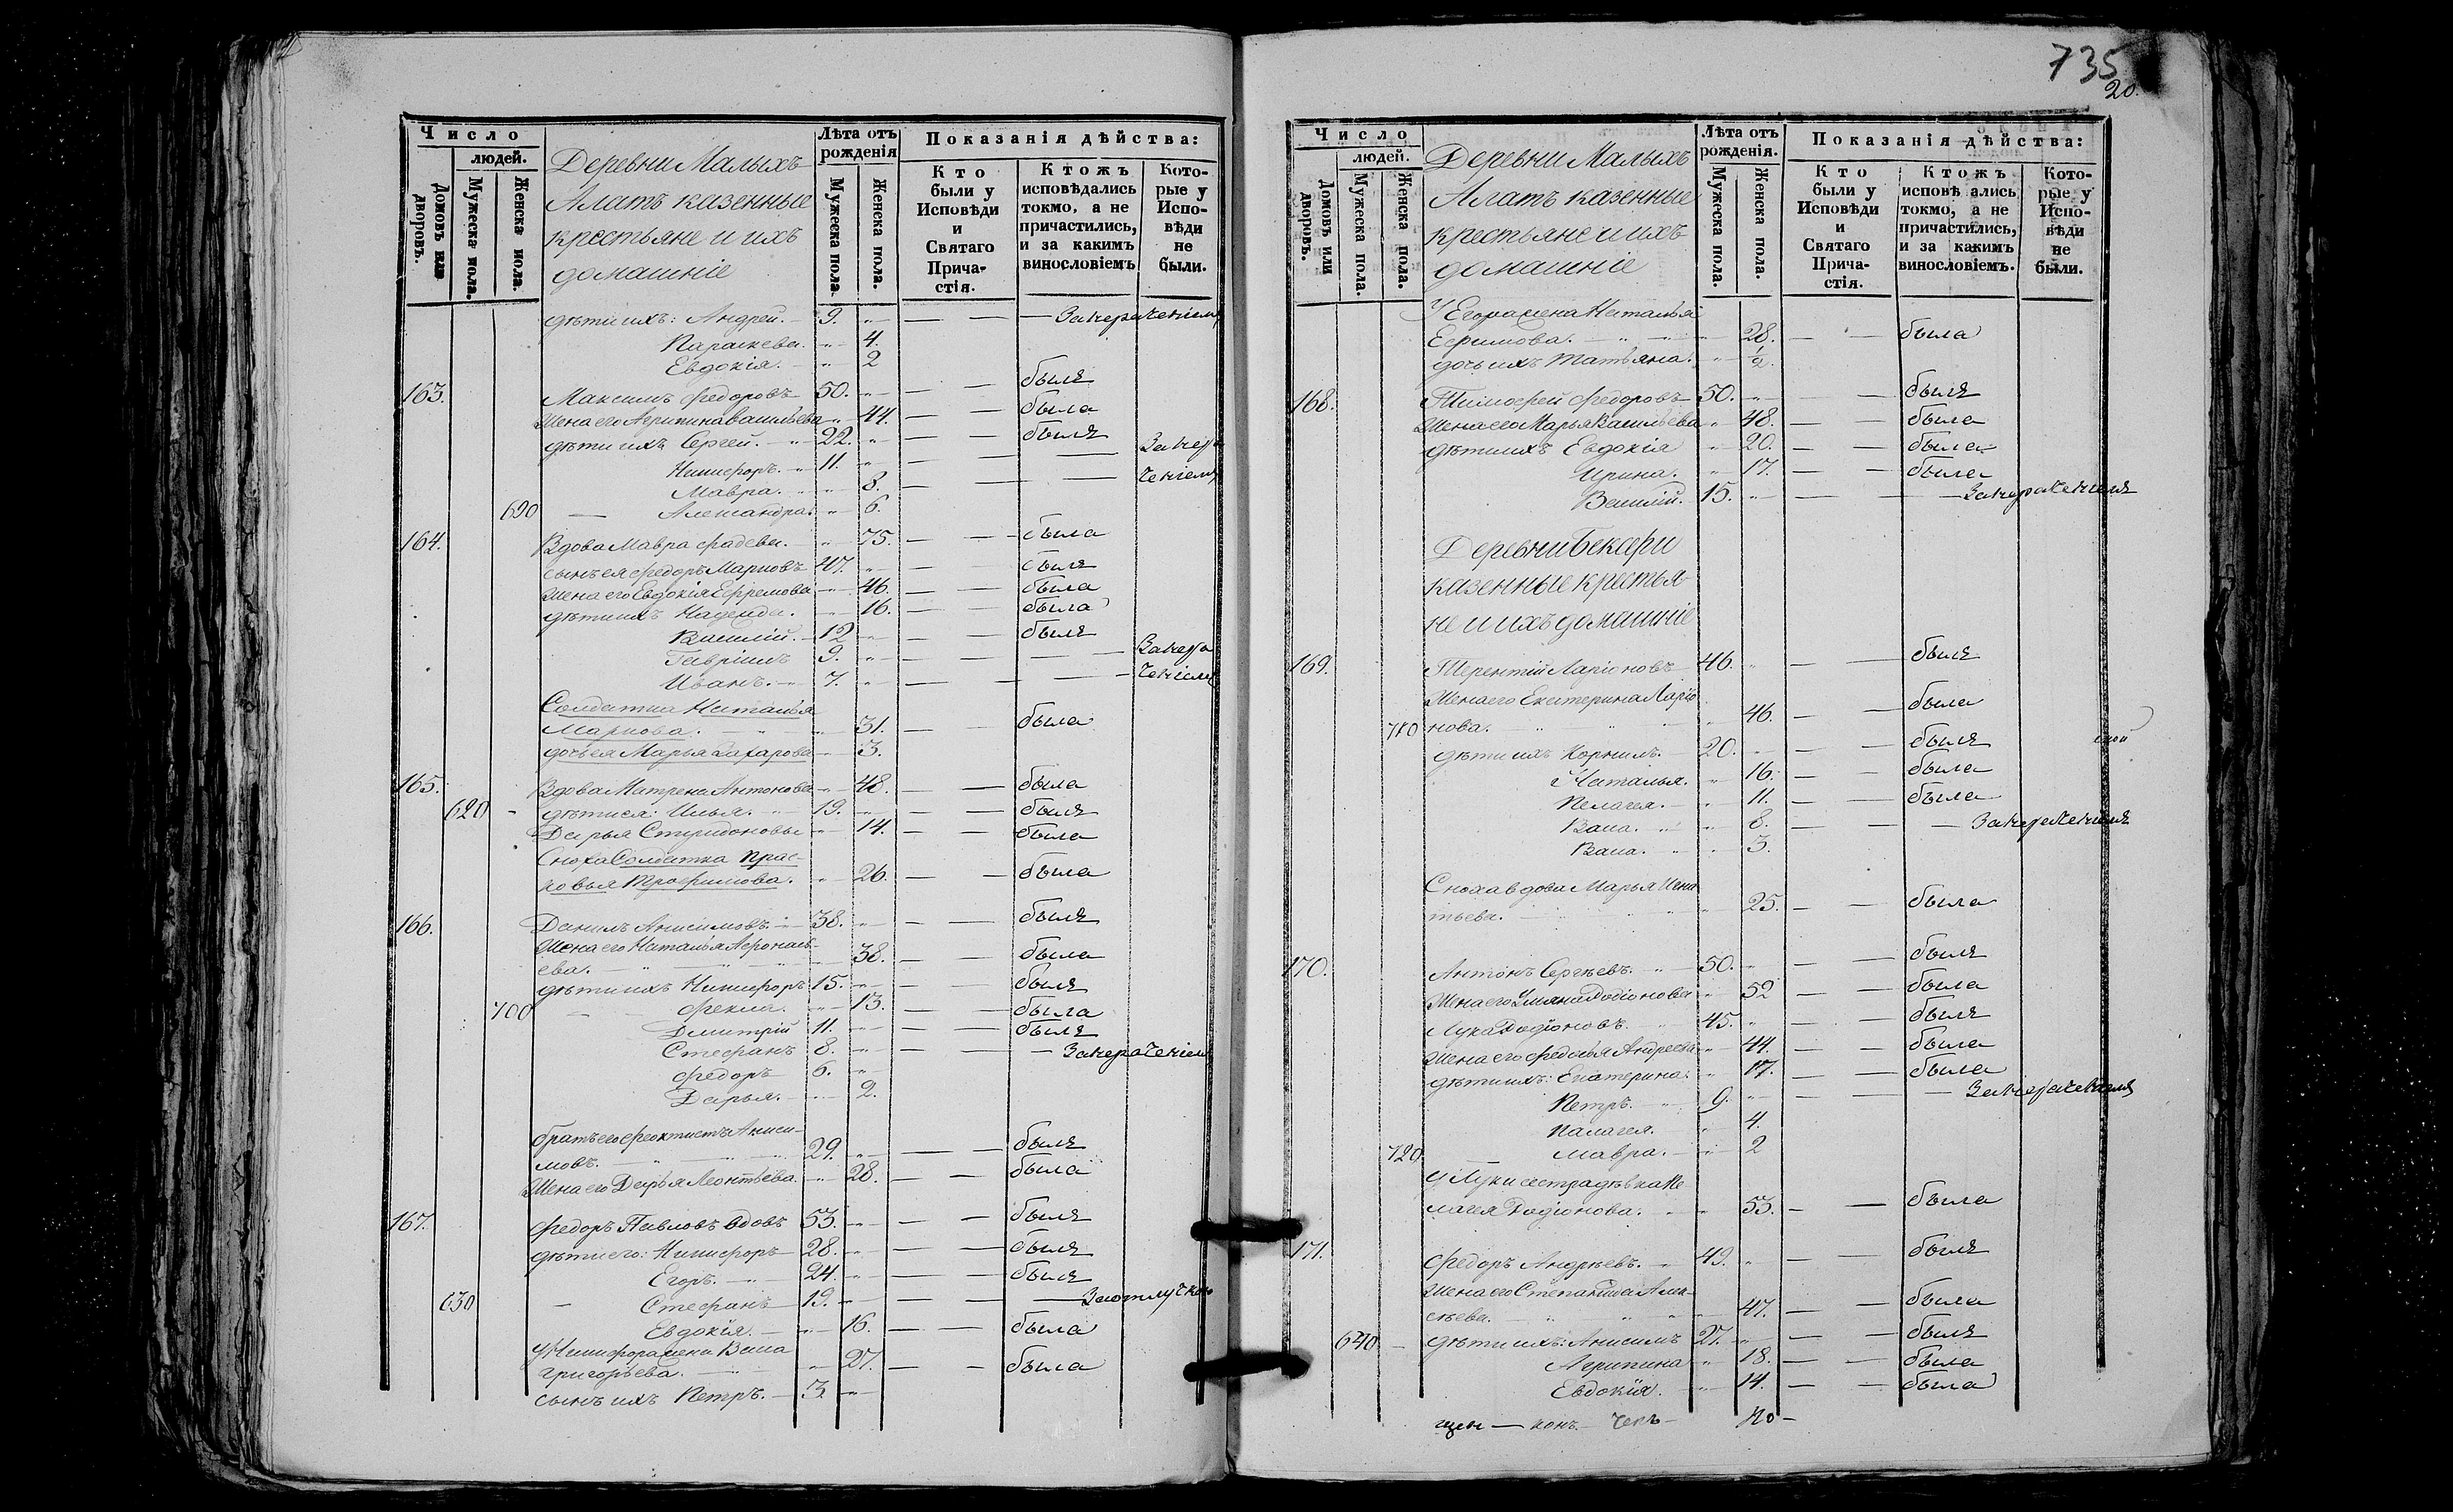 Число
людей.
Домовъ или дворовъ.
Мужеска пола.
Женска пола.
Деревни Малыхъ
Алатъ казенные
крестьяне и ихъ
домашніе
Лѣта отъ рожденія
Мужеска пола.
Женска пола.
Показанія дѣйства:
Кто были у Исповѣди и Святаго Причастія.
Ктожъ исповѣдались токмо, а не причастились, и за какимъ винословіемъ
Которые у Исповѣди не были.
дѣти ихъ: Андрей. 9.
Параскева. 4.
Евдокія. 2
163. Максимъ Федоровъ 50. былъ
Жена его Агрипина Васильева 44. была
дѣти ихъ Сергей. 22. былъ
Никифоръ. 11.
Мавра. 8.
690 Александра. 6.
164. Вдова Мавра Фадева. 75. была
сынъ ея Федоръ Марковъ 47. былъ
Жена его Евдокія Ефремова 46. была
дѣти ихъ Надежда. 16. была
Василій. 12 былъ
Гавріилъ 9.
Иванъ. 7.
Солдатка Наталья
Маркова. 31. была
дочь ея Марья Захарова 3.
165. Вдова Матрена Антонова 48. была
620 дѣти ея: Илья. 19. былъ
Дарья Спиридоновы 14. была
Сноха Солдатка Прас-
ковья Трофимова. 26. была
166. Данилъ Анисимовъ. 38. былъ
Жена его Наталья Афонась-
ева. 38. была
дѣти ихъ Никифоръ 15. былъ
700 Фекла. 13. была
Дмитрій 11. былъ
Стефанъ 8.
Федоръ 6.
Дарья. 2.
братъ его Феоктистъ Аниси-
мовъ. 29. былъ
Жена его Дарья Леонтьева. 28. была
167. Федоръ Павловъ вдовъ 53. былъ
дѣти его: Никифоръ 28. былъ
Егоръ. 24. былъ
630 Стефанъ 19. За отлучкою
Евдокія. 16. была
У Никифора жена Васа
Григорьева. 27. была
сынъ ихъ Петръ. 3.
735
20.
Число
людей.
Домовъ или дворовъ.
Мужеска пола.
Женска пола.
Деревни Малыхъ
Алатъ казенные
крестьяне и ихъ
домашніе
Лѣта отъ рожденія.
Мужеска пола.
Женска пола.
Показанія дѣйства:
Кто были у Исповѣди и Святаго Причастія.
Ктожъ исповѣ ались токмо, а не причастились, и за какимъ винословіемъ.
Которые у Исповѣди не были.
У Егора жена Наталья
Ефимова. 28. была
дочь ихъ Татьяна. 1/2.
168. Тимофей Федоровъ 50. былъ
Жена его Марья Васильева 48. была
дѣти ихъ Евдокія 20. была
Ирина. 17. была
Василій. 15.
Деревни Бекери
казенные крестья-
не и ихъ домашніе
169. Терентій Ларіоновъ 46. былъ
Жена его Екатерина Ларіо
710 нова. 46. была
дѣти ихъ Корнилъ. 20. былъ
Наталья. 16. была
Пелагея. 11. была
Васа. 8.
Васа. 3.
Сноха вдова Марья Игна
тьева. 25. была
170. Антонъ Сергѣевъ. 50. былъ
Жена его Ульяна Родіонова 52 была
Лука Родіоновъ. 45. былъ
Жена его Федосья Андреева 44. была
дѣти ихъ: Екатерина. 17. была
Петръ. 9.
Палагея. 4.
720. Мавра. 2
У Луки сестра дѣвка Пе
лагея Родіонова. 53. была
171. Федоръ Андрѣевъ. 49. былъ
Жена его Степанида Алек-
сѣева. 47. была
640 дѣти ихъ: Анисимъ 27. былъ
Агрипина 18. была
Евдокія. 14. была